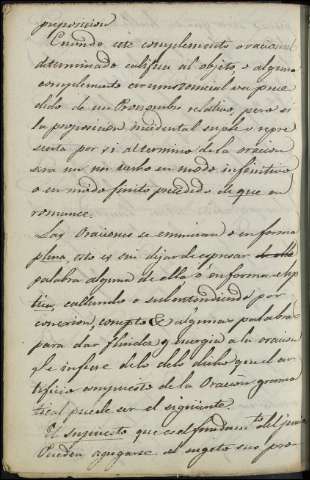 proposicion
Cuando este complemento oracional
determinado califica al objeto o alguno
complemento circunstancial va prece
dido de un Pronombre relativo, pero si
la proposicion incidental suple o repre
senta por si al termino de la oracion
sera un verbo en modo infinitivo
o en modo finito precedido de que en
romance.
Las Oraciones se enuncian o en forma
plena, esto es sin dejar de espresar
palabra alguna de ella o en forma elip
tica, callando o subentendiendo por
conexion, algunas palabras
para dar fluidez y energia a la oracion
Se infiere de lo dicho que el ar
tificio compuesto de la Oracion grama
tical puede ser el siguiente.
El supuesto que es el fundamto. del
Pueden agregarse al sugeto sus pro